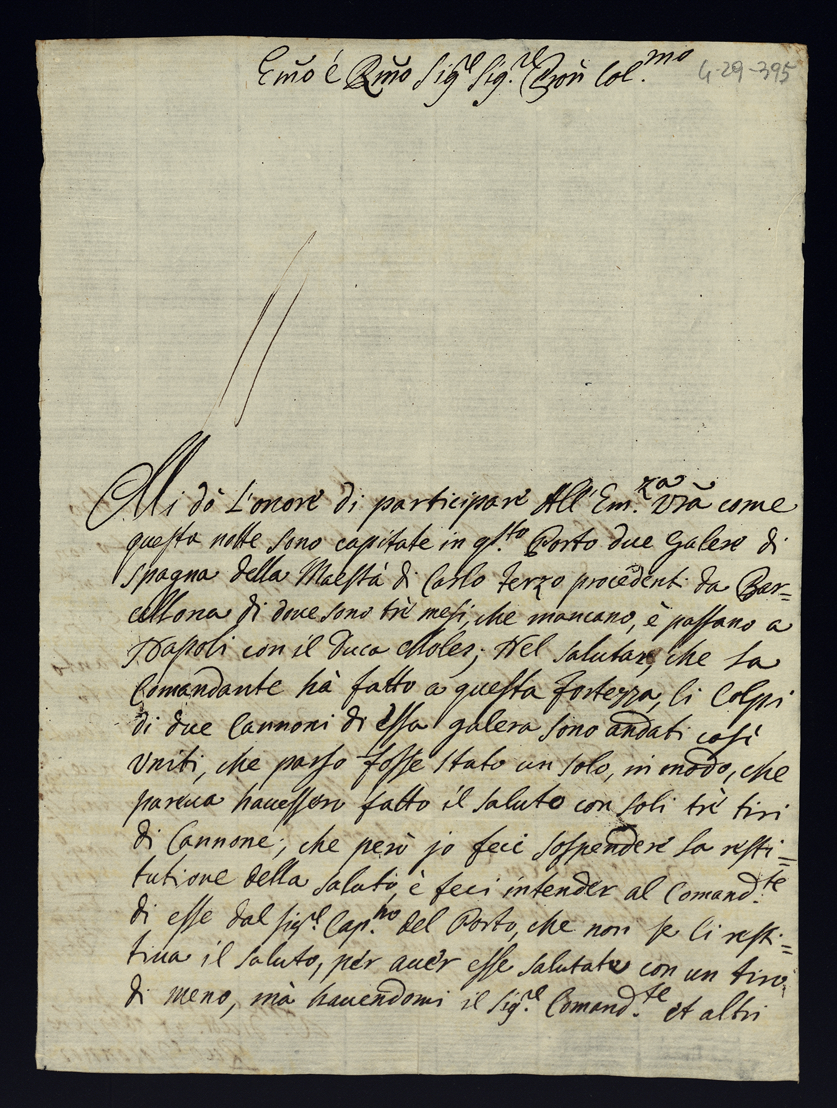 Emõ é Rmõ Sig.re Sig.re Pron Col.mo
G-29-395
Mi dò L'onore di participare All'Em.za Vrã come
questa notte sono capitate in qsto Porto due Galere di
Spagna della Maestà di Carlo Terzo procedenti da Bar=
cellona di dove sono trè mesi, che mancano, è passano a
Napoli con il Duca Moles; Nel salutare, che La
Comandante hà fatto a questa fortezza, li Colpi
di due Cannoni di essa galera sono andati così
Vniti, che parso fosse stato un solo, in modo, che
pareua hauessero fatto il saluto con soli trè tiri
di Cannone, che però jo feci sospendere la resti=
tutione della saluto, è feci intender al Comand.te
di esse dal Sig.e Cap.no del Porto, che non se li resti=
tiua il saluto, per auer esse salutato con un tiro
di meno, mà hauendomi il Sig.re Comand.te et altri